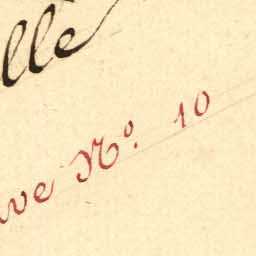 lle
ve Nº. 10